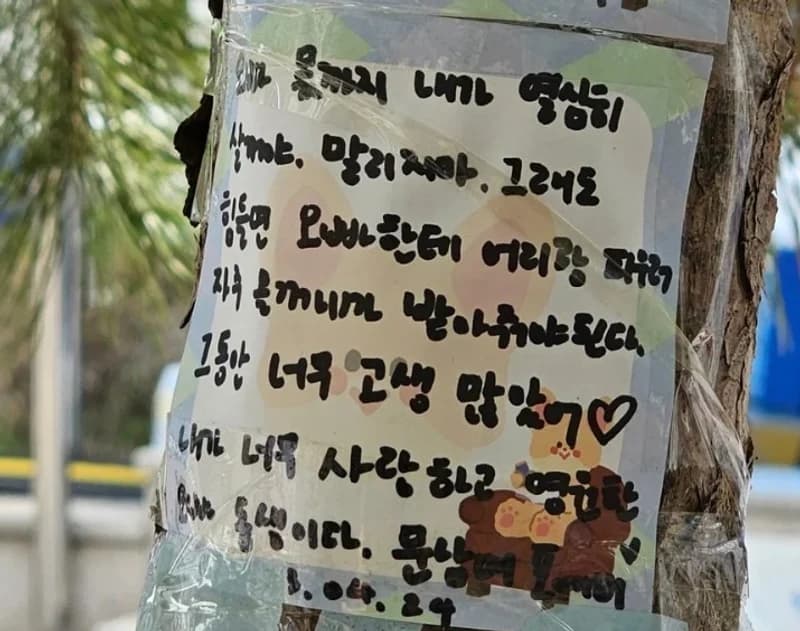 오빠 몫까지 내가 열심히
살꺼야. 말리지마. 그래도
힘들면 오빠한테 어리광 피우러
자주 올꺼니까 받아줘야된다.
그동안 너무 고생 많았어♡
내가 너무 사랑하고 영원한
오빠 동생이다. 문남매 포에버
3. 04. 24